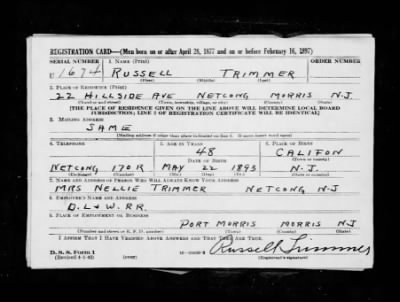 REGISTRATION CARD—(Men born on or after April 28, 1877 and on or before February 16, 1897)
SERIAL NUMBER 1. NAME (Print) ORDER NUMBER
U 1674 RUSSELL TRIMMER
(First) (Middle) (Last)
2. PLACE OF RESIDENCE (Print)
22 HILLSIDE AVE NETCONG MORRIS N.J.
(Number and street) (Town, township, village, or city) (County) (State)
[THE PLACE OF RESIDENCE GIVEN ON THE LINE ABOVE WILL DETERMINE LOCAL BOARD
JURISDICTION; LINE 2 OF REGISTRATION CERTIFICATE WILL BE IDENTICAL]
3. MAILING ADDRESS
SAME
[Mailing address if other than place indicated on line 2. If same insert word same]
4. TELEPHONE 5. AGE IN YEARS 6. PLACE OF BIRTH
48 CALIFON
DATE OF BIRTH (Town or county)
NETCONG 170R MAY 22 1893 N.J.
(Exchange) (Number) (Mo.) (Day) (Yr.) (State or country)
7. NAME AND ADDRESS OF PERSON WHO WILL ALWAYS KNOW YOUR ADDRESS
MRS NELLIE TRIMMER NETCONG N-J
8. EMPLOYER'S NAME AND ADDRESS
D.L & W.RR.
9. PLACE OF EMPLOYMENT OR BUSINESS
PORT MORRIS MORRIS NJ
(Number and street or R. F. D. number) (Town) (County) (State)
I AFFIRM THAT I HAVE VERIFIED ABOVE ANSWERS AND THAT THEY ARE TRUE.
D. S. S. Form 1
(Revised 4-1-42) (over)
Russell Trimmer
(Registrant's signature)